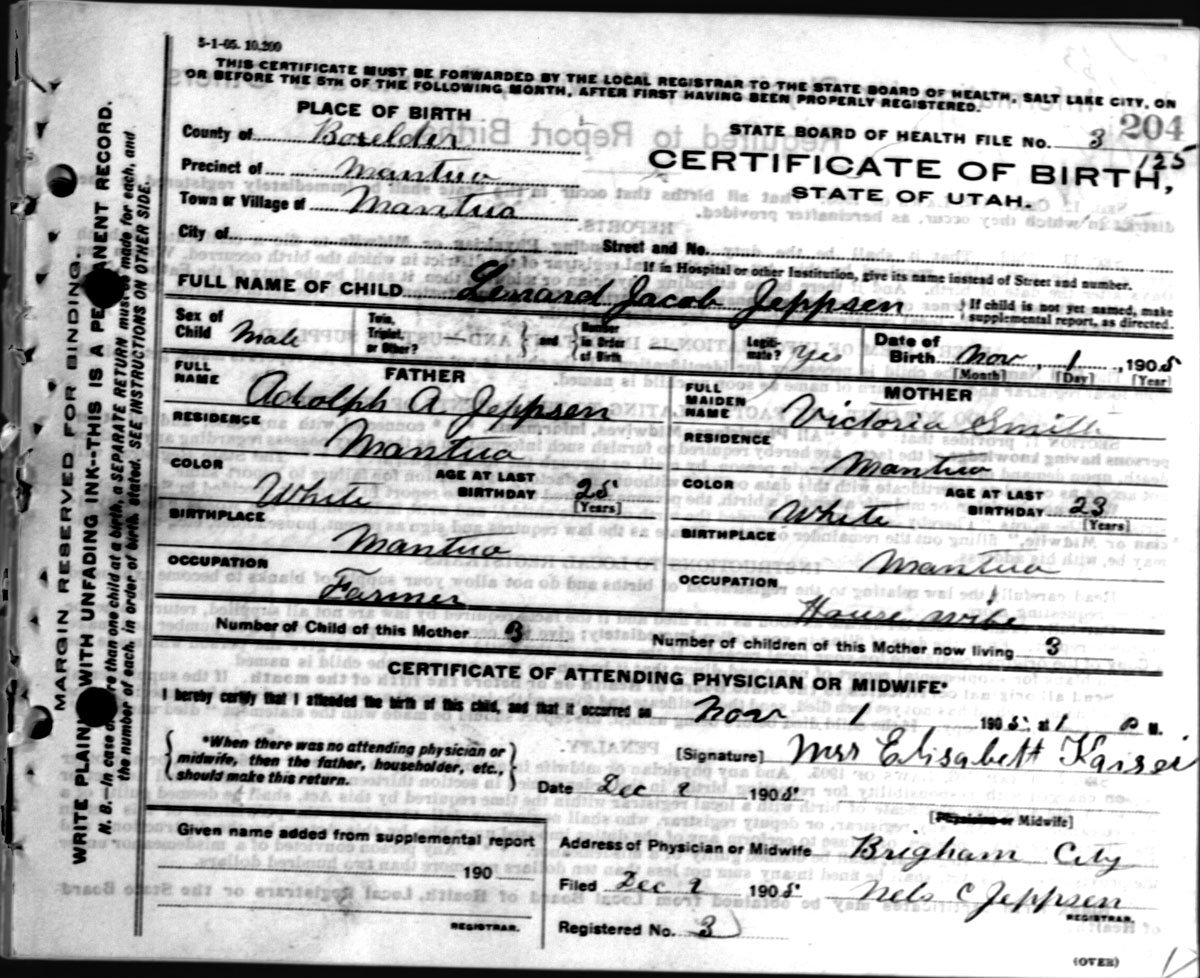 5-1-05. 10,200
THIS CERTIFICATE MUST BE FORWARDED BY THE LOCAL REGISTRAR TO THE STATE BOARD OF HEALTH, SALT LAKE CITY, ON
OR BEFORE THE 5TH OF THE FOLLOWING MONTH, AFTER FIRST HAVING BEEN PROPERLY REGISTERED.
PLACE OF BIRTH
STATE BOARD OF HEALTH FILE NO. 3 204
125
County of Boxelder
CERTIFICATE OF BIRTH,
Precinct of Mantua
STATE OF UTAH.
Town or Village of Mantua
City of
Street and No.
If in Hospital or other Institution, give its name instead of Street and number.
FULL NAME OF CHILD Lenard Jacob Jeppsen
If child is not yet named, make
supplemental report, as directed.
Sex of
Child Male
Twin,
Triplet,
or Other? —
and
Number
in Order
of Birth
Legiti-
mate? Yes
Date of
Birth Nov 1 1905
[Month] [Day] [Year]
FATHER
FULL
NAME Adolph A. Jeppsen
RESIDENCE
Mantua
COLOR
White
AGE AT LAST
BIRTHDAY 25
[Years]
BIRTHPLACE
Mantua
OCCUPATION
Farmer
MOTHER
FULL
MAIDEN
NAME Victoria Smith
RESIDENCE
Mantua
COLOR
White
AGE AT LAST
BIRTHDAY 23
[Years]
BIRTHPLACE
Mantua
OCCUPATION
House wife
Number of Child of this Mother 3
Number of children of this Mother now living 3
CERTIFICATE OF ATTENDING PHYSICIAN OR MIDWIFE.*
I hereby certify that I attended the birth of this child, and that it occurred on Nov 1 1905 at 1 P M.
*When there was no attending physician or
midwife, then the father, householder, etc.,
should make this return.
[Signature] Mrs Elisabett Kaiser
Date Dec 2 1905
[Physician or Midwife]
Given name added from supplemental report
190
REGISTRAR.
Address of Physician or Midwife Brigham City
Filed Dec 2 1905 Nels C Jeppsen
REGISTRAR.
Registered No. 3
(OVER)
MARGIN RESERVED FOR BINDING.
WRITE PLAINLY WITH UNFADING INK--THIS IS A PERMANENT RECORD.
N. B.—In case of more than one child at a birth, a SEPARATE RETURN must be made for each, and
the number of each, in order of birth, stated. SEE INSTRUCTIONS ON OTHER SIDE.